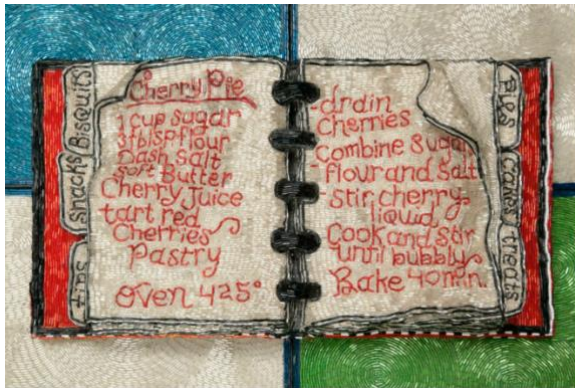 Cherry Pie
1 cup sugar
3 tblsp flour
Dash salt
soft Butter
Cherry Juice
tart red
Cherries
Pastry
Oven 425°
-drain
Cherries
Combine Sugar
-flour and Salt
-stir cherry
liquid
Cook and Stir
until bubbly
Bake 40 min.
Biscuits
Snacks
Pies
Cakes
treats